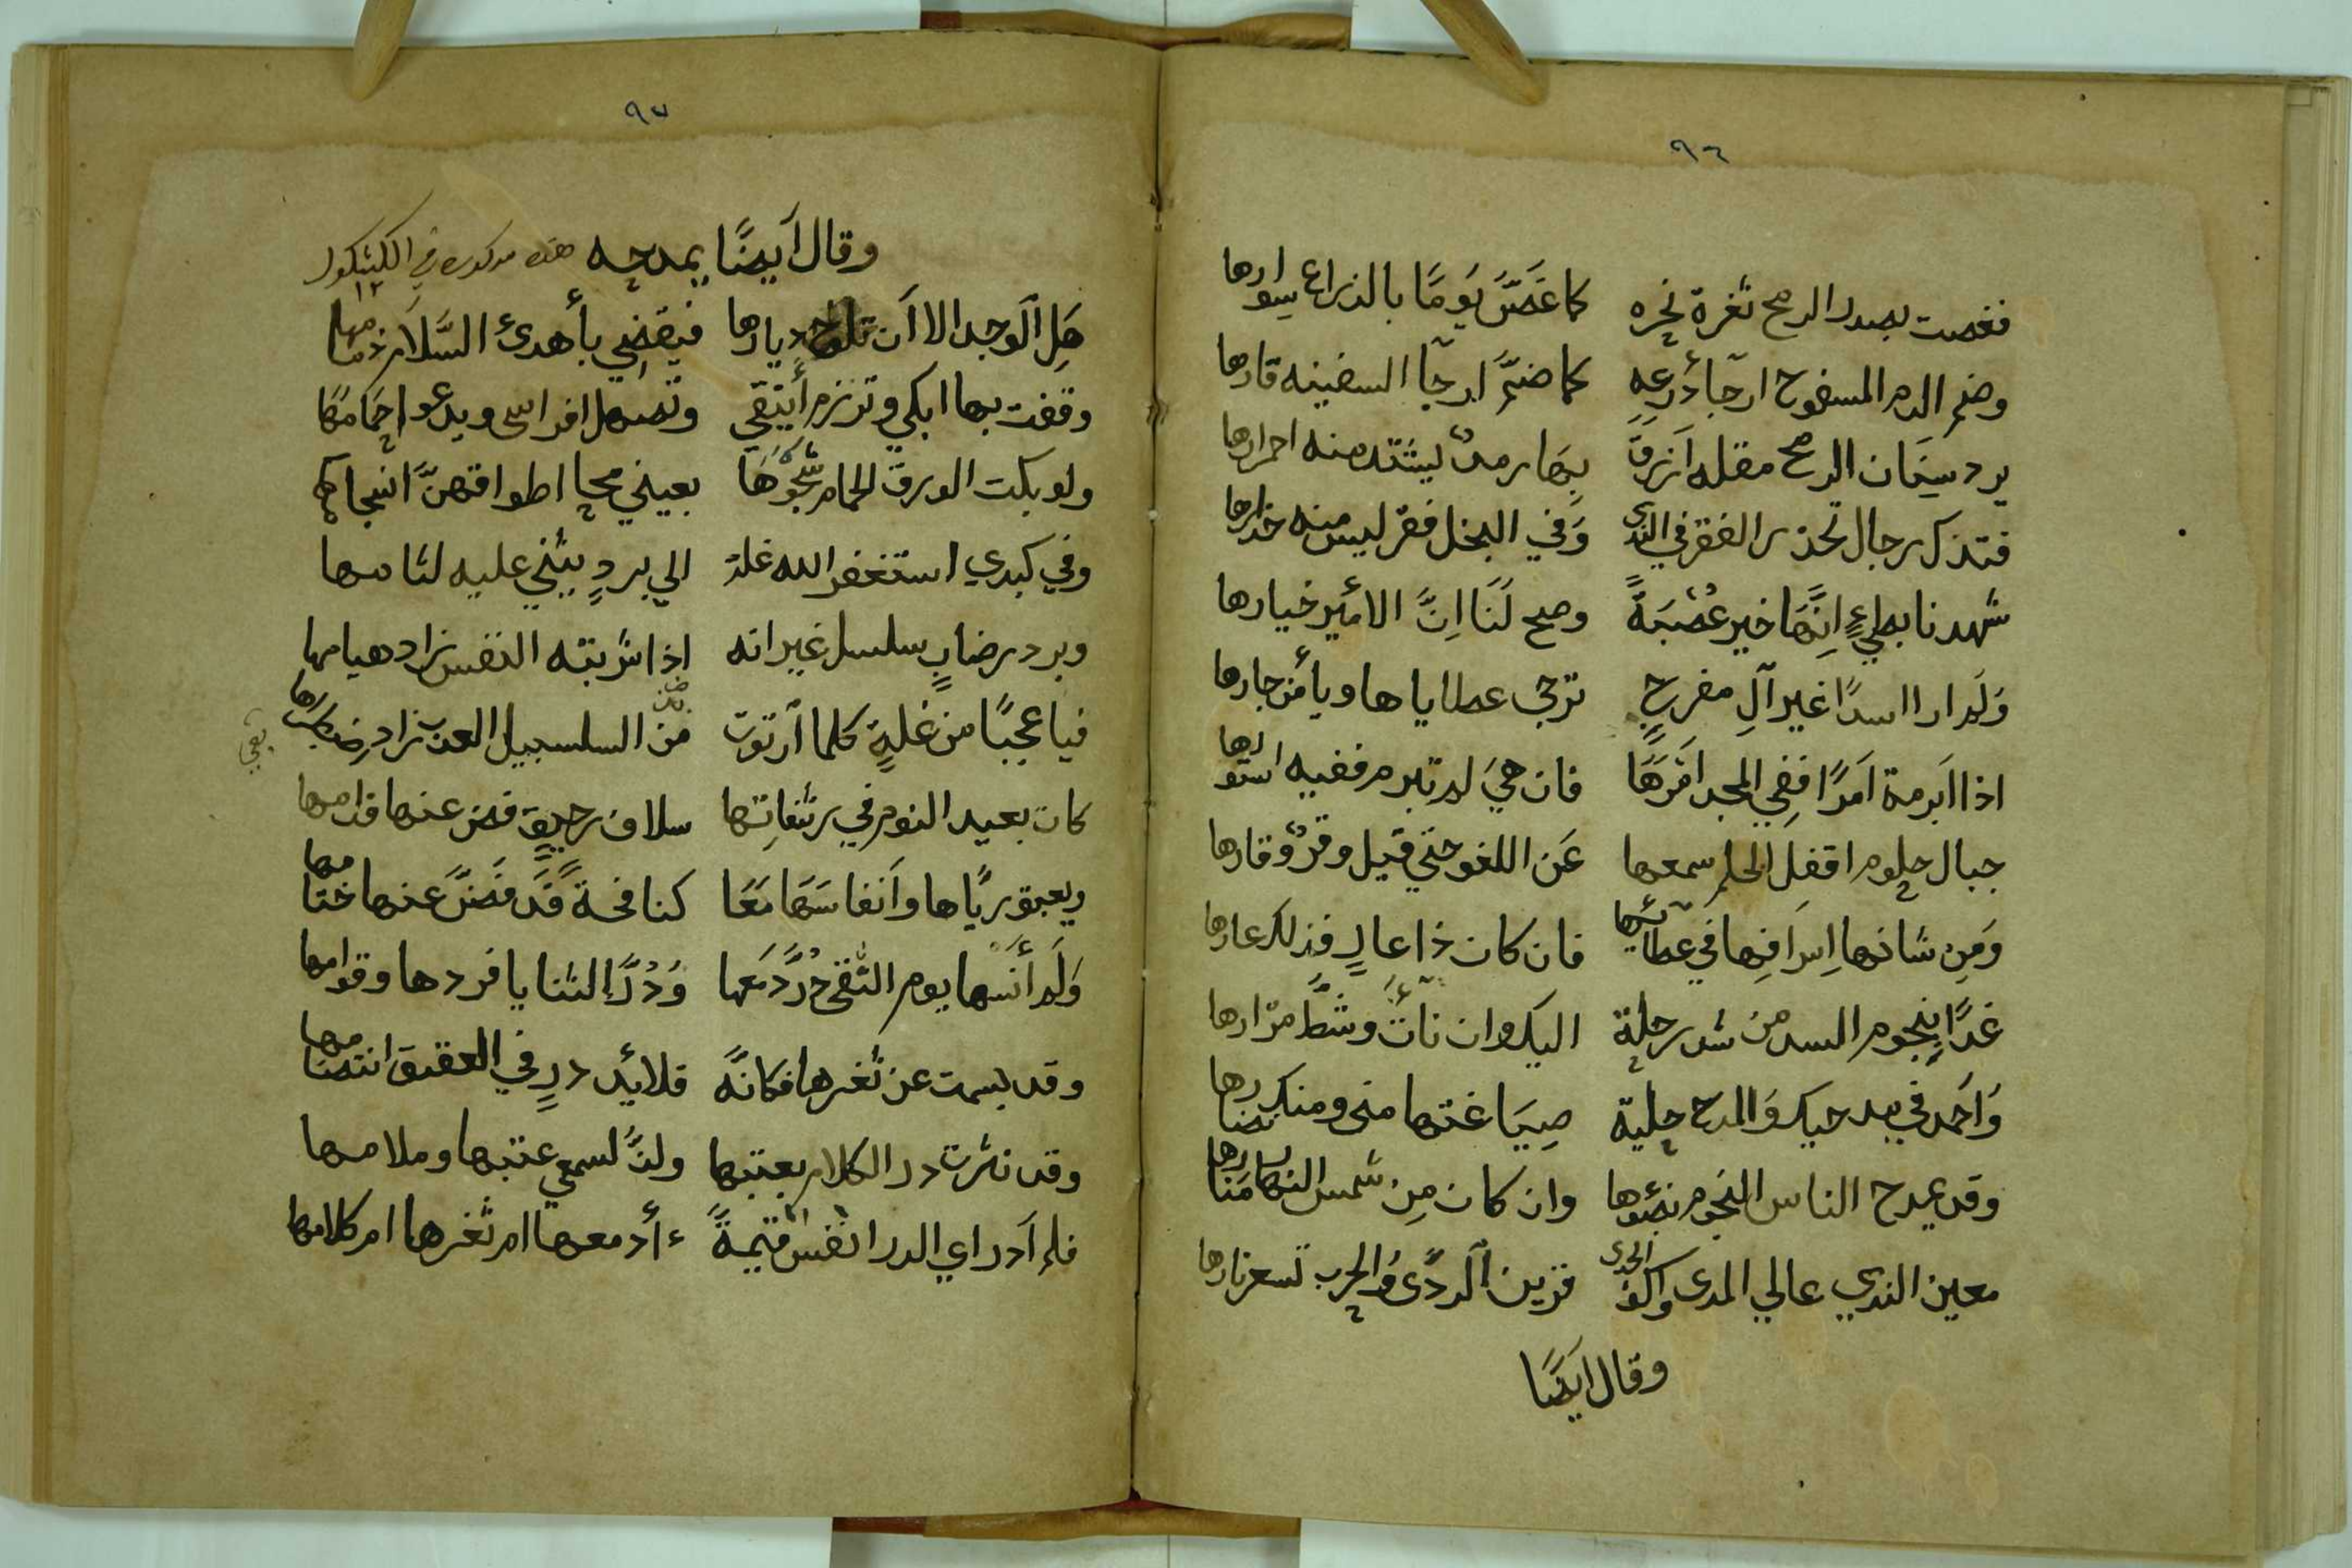 ٩٦
فغصت بصدر الرمح ثغرة نحره كما غَصَّ يَومًا بالذراع سوارها
وضم الدم المسفوح ارجآء درعه كما ضمَّ ارجآ السفينه قارها
يرد سِنَان الرمح مقله اَزرق بِهَا رمدٌ ليشتد منه احمرارها
فتذكر رجال تحذر الفقر في الندى وَفي البخل فقر ليس منه
شهدنا بطيءٍ اِنَّهَا خير عُصْبَةً وصح لَنَا اِنَّ الامير خيارها
وَلَم ار ااسدًا غير آلِ مفرحٍ ترجى عطاياها ويأمن جارها
اذا اَبرمة اَمرًا ففي المجد اَمْرَهَا فان هيَ لم تبرم ففيه
جبال حلوم اقفل الحلم سمعها عَن اللغو حتي قيل وقرٌ وقارها
وَمِن شانها اِسرَافِها في عطآئها فان كان ذا عارٍ فذلك عارها
غدًا بنجوم السعد من شد رحلة اليك وان نأت وشطَّ مزارها
وَاَحمد في يد حيك وَالمدح حلية صِيَاغتها مني ومنك نضارها
وقد يمدح الناس النجوم بضوها وان كان مِن شمس النهار مَنَارها
معين الندي عالي المدى واكف الجدى قرين ٱلردَّى وُالحرب تسعر نارها
وقال اَيضًا
٩٧
وقال اَيضًا يمدحه هذه مذكوره في الكشكول
١٢
هَلِ ٱلوجد الا اَن تلوح ديارها فيقضي بأهدئ السَّلَام ذمامها
وقفت بها ابكي وترزم أينقي وتصهل افراسى ويدعو احَمَامهَا
ولو بكت الورق الحمام شَجْوَهَا بعيني محا اطواقهنَّ انسجامها
وفي كبدي استغفر الله غلة الي بردٍ يثني عليه لثامها
وبرد رضابٍ سلسل غير انه اذا شربته النفس زاد هيامها
فيا عجبًا من غلةٍ كلما ٱرتوت من السلسبيل العذب زاد
بقي
كان بعيد النوم في رشفاتِها سلاف رحيقٍ فض عنها فدامها
ويعبق ريَّاها واَنفاسَهَا مَعًا كنافحة قَد فَضَّ عنها ختامها
وَلَم أَنسها يوم التقى دُرَّ دَمَعها وَدُرَّ الثنايا فردها وقوامها
وقد بسمت عن ثغرها فكانَّه قلائد درٍ في العقيق انتضامها
وقد نثرت در الكلام بعتبها ولذَّ لسمعي عتبها وملامها
فلم اَدر اي الدر انفس قيمةً ءأدمعها ام ثغرها ام كلامها